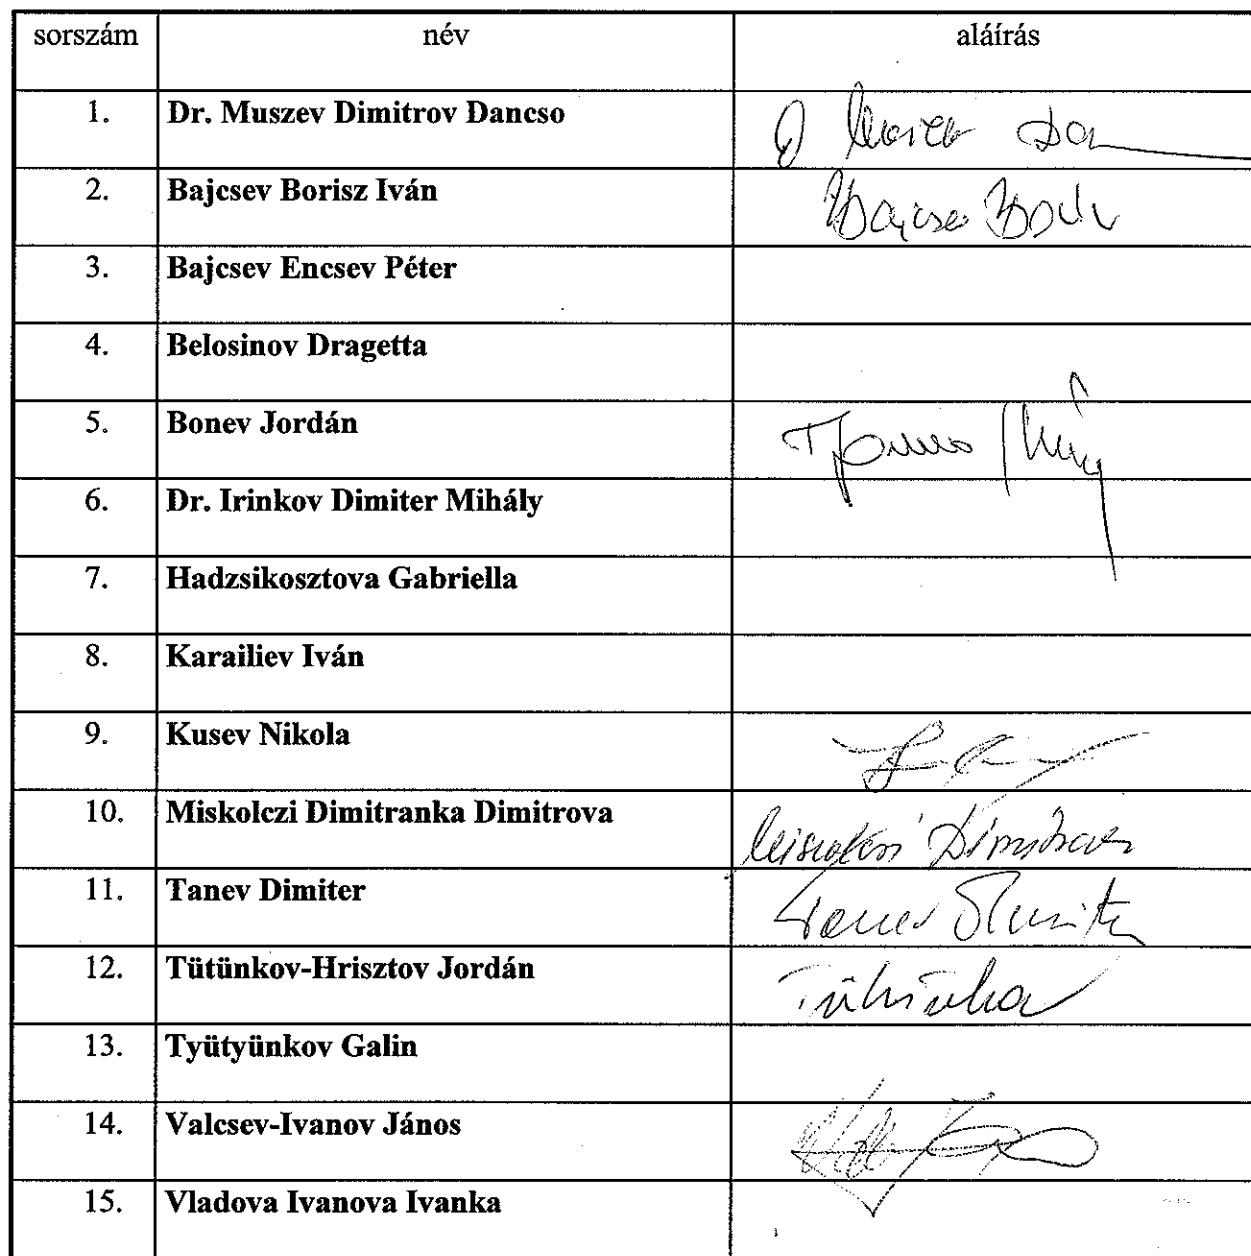 sorszám név aláírás
1. Dr. Muszev Dimitrov Dancso
2. Bajcsev Borisz Iván
3. Bajcsev Encsev Péter
4. Belosinov Dragetta
5. Bonev Jordán
6. Dr. Irinkov Dimiter Mihály
7. Hadzsikosztova Gabriella
8. Karailiev Iván
9. Kusev Nikola
10. Miskolczi Dimitranka Dimitrova
11. Tanev Dimiter
12. Tütünkov-Hrisztov Jordán
13. Tyütyünkov Galin
14. Valcsev-Ivanov János
15. Vladova Ivanova Ivanka